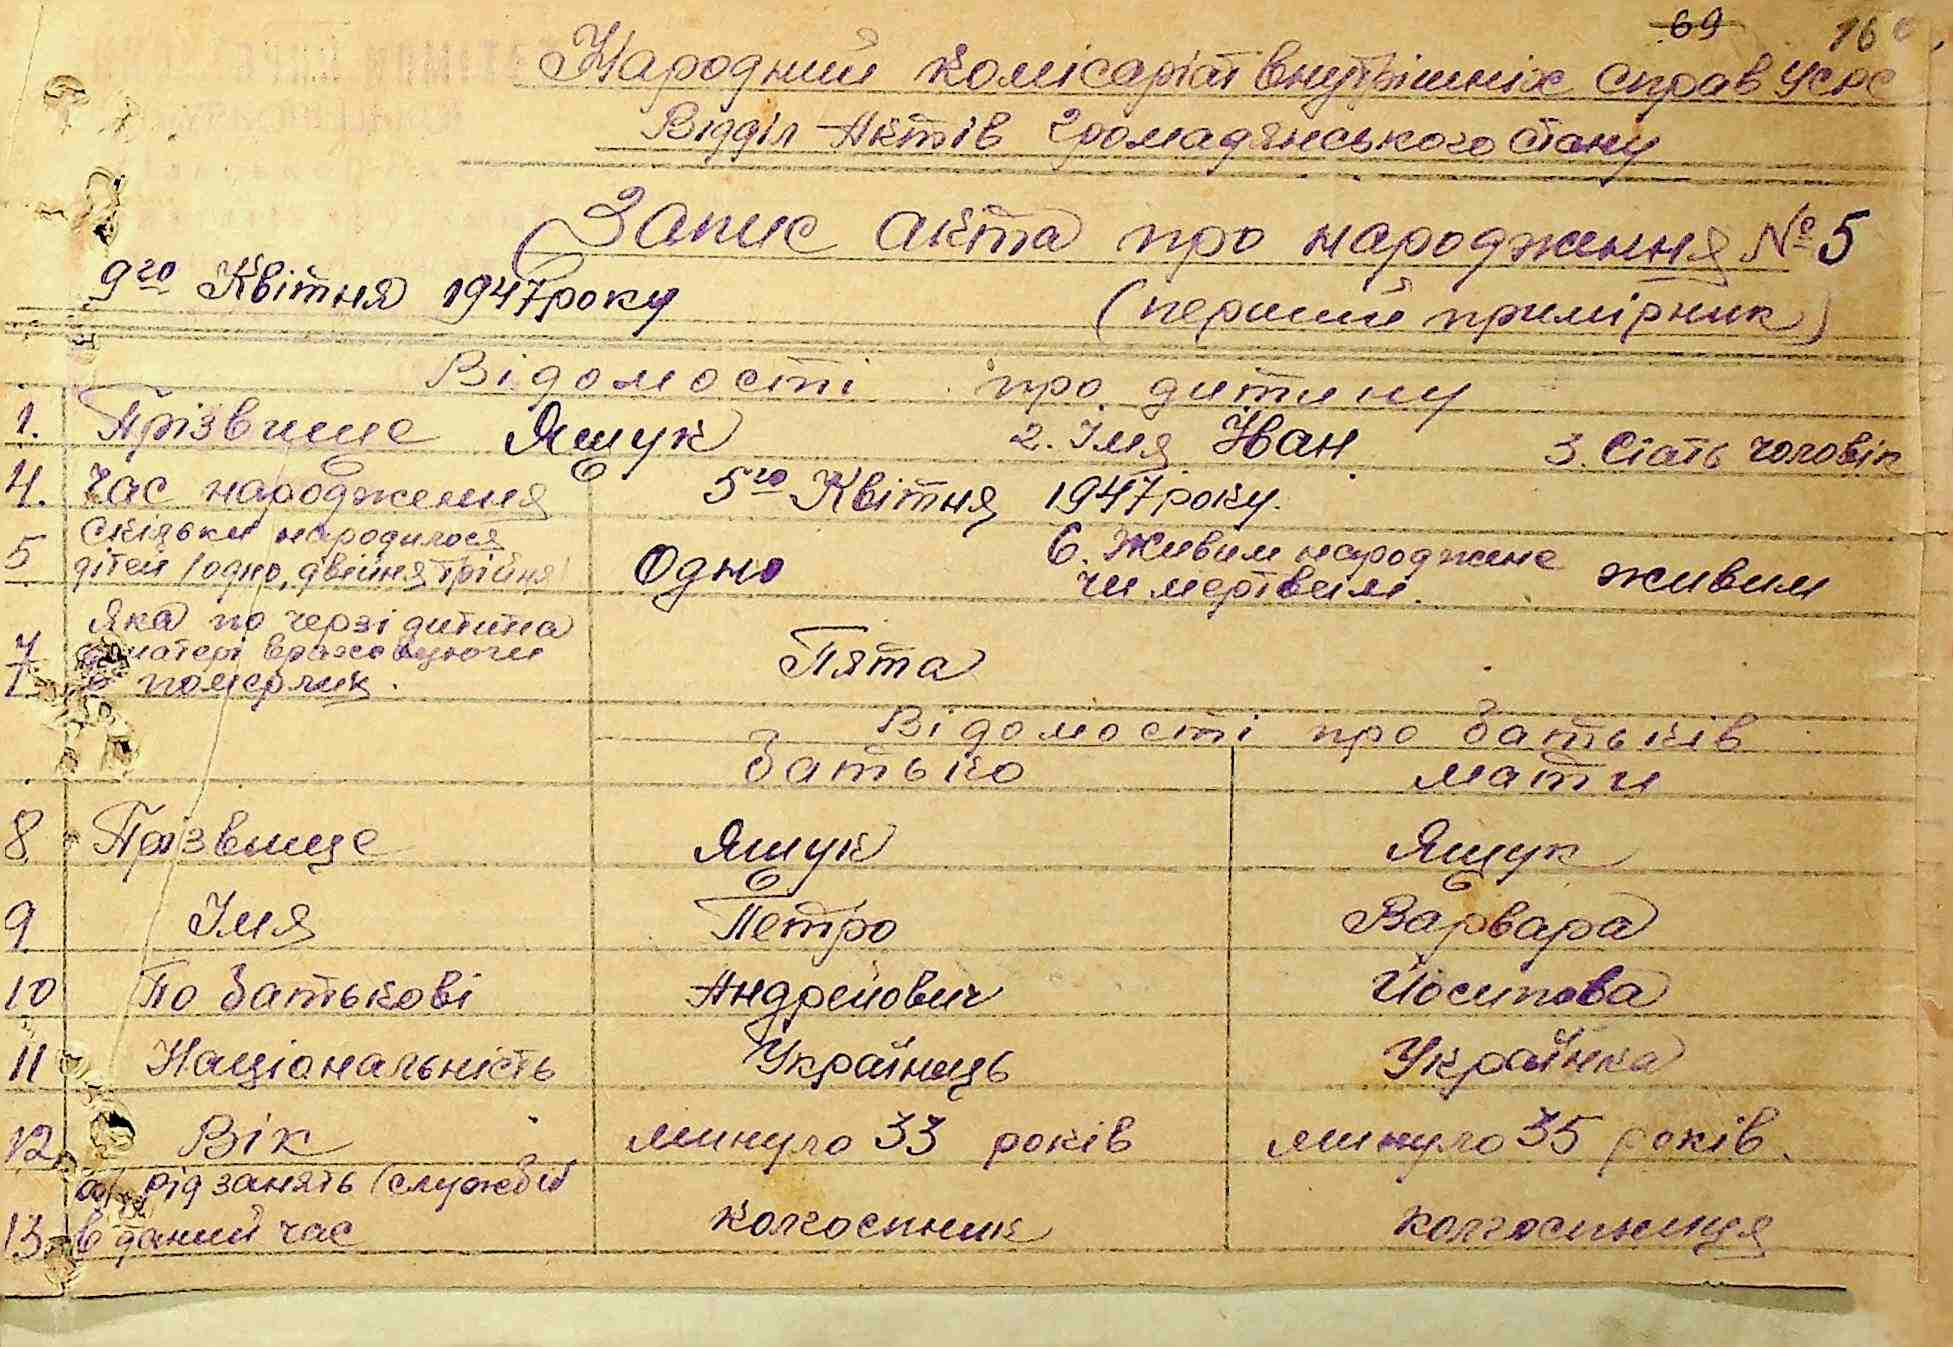 69 16
Народний комісаріат внутрішніх справ УСРС
Відділ Актів Громадянського стану
Запис акта про народження № 5
9го Квітня 1947 року (перший примірник)
Відомості про дитину
1. Прізвище Ящук 2. Імя Іван 3. Стать чоловік
4. Час народження 5го Квітня 1947 року.
5 Скільки народилося дітей /одно, двійня, трійня/ Одно 6. Живим народжене чи мертвим. живим
7. Яка по черзі дитина у матері враховуючи й померлих. Пята
Відомості про батьків
батько мати
8 Прізвище Ящук Ящук
9 Імя Петро Варвара
10 По батькові Андрейович Йосипова
11 Національність Українець Українка
12. Вік минуло 33 років минуло 35 років.
13. а/ рід занять (служби) в даний час колгоспник колгоспниця